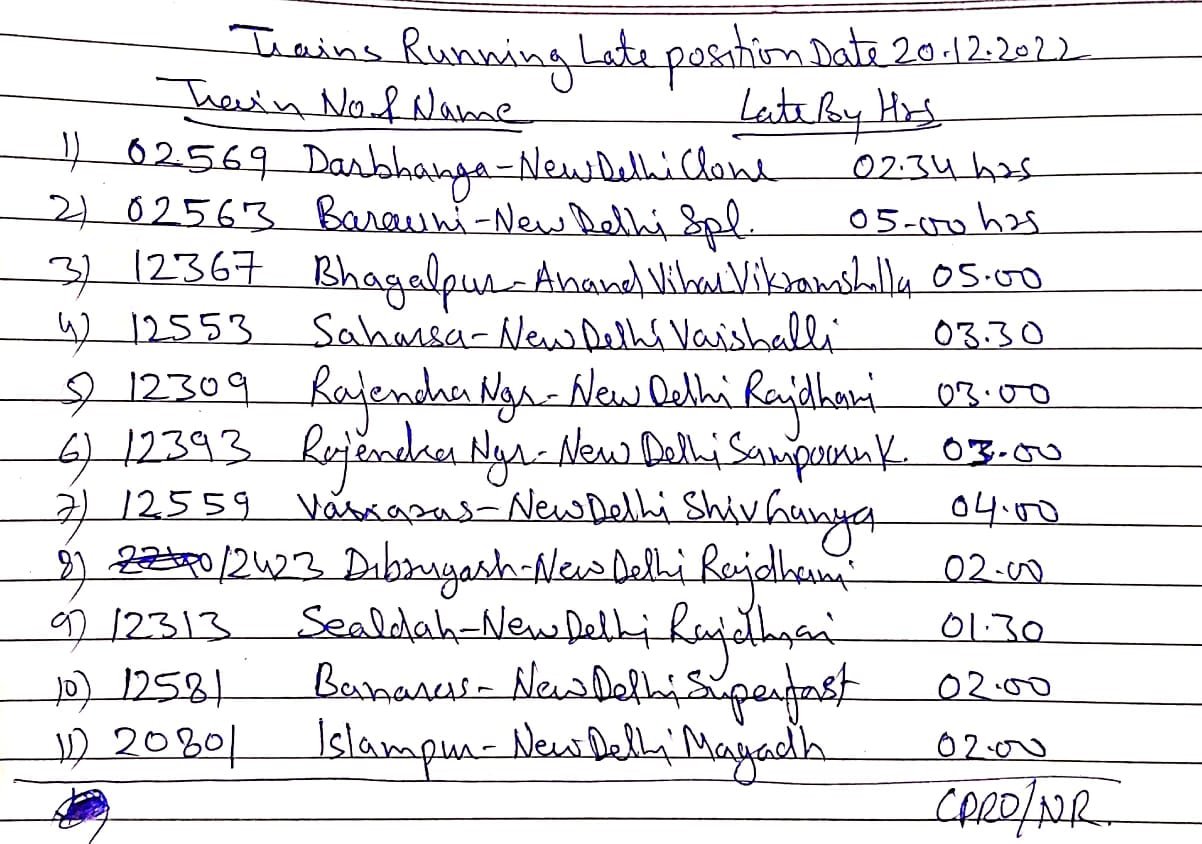 Trains Running Late position Date 20.12.2022
Train No & Name Late By Hrs
1) 02569 Darbhanga-New Delhi Clone 02.34 hrs
2) 02563 Barauni-New Delhi Spl. 05-00 hrs
3) 12367 Bhagalpur-Anand Vihar Vikramshilla 05.00
4) 12553 Saharsa-New Delhi Vaishalli 03.30
5) 12309 Rajendra Ngr-New Delhi Rajdhani 03.00
6) 12393 Rajendra Ngr-New Delhi Sampoorn K. 03.00
7) 12559 Varanasas-New Delhi Shiv Ganga 04.00
8) 12423 Dibrugarh-New Delhi Rajdhani 02.00
9) 12313 Sealdah-New Delhi Rajdhnai 01.30
10) 12581 Banaras-New Delhi Superfast 02.00
11) 20801 Islampur-New Delhi Magadh 02.00
CPRO/NR.